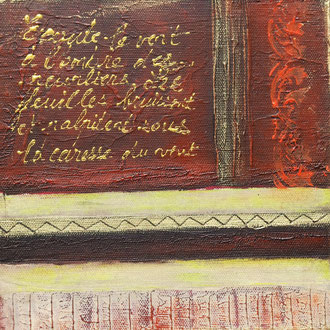 Ecoute le vent
à l'ombre des
feuilles bruissent
et palpitent sous
la caresse du vent